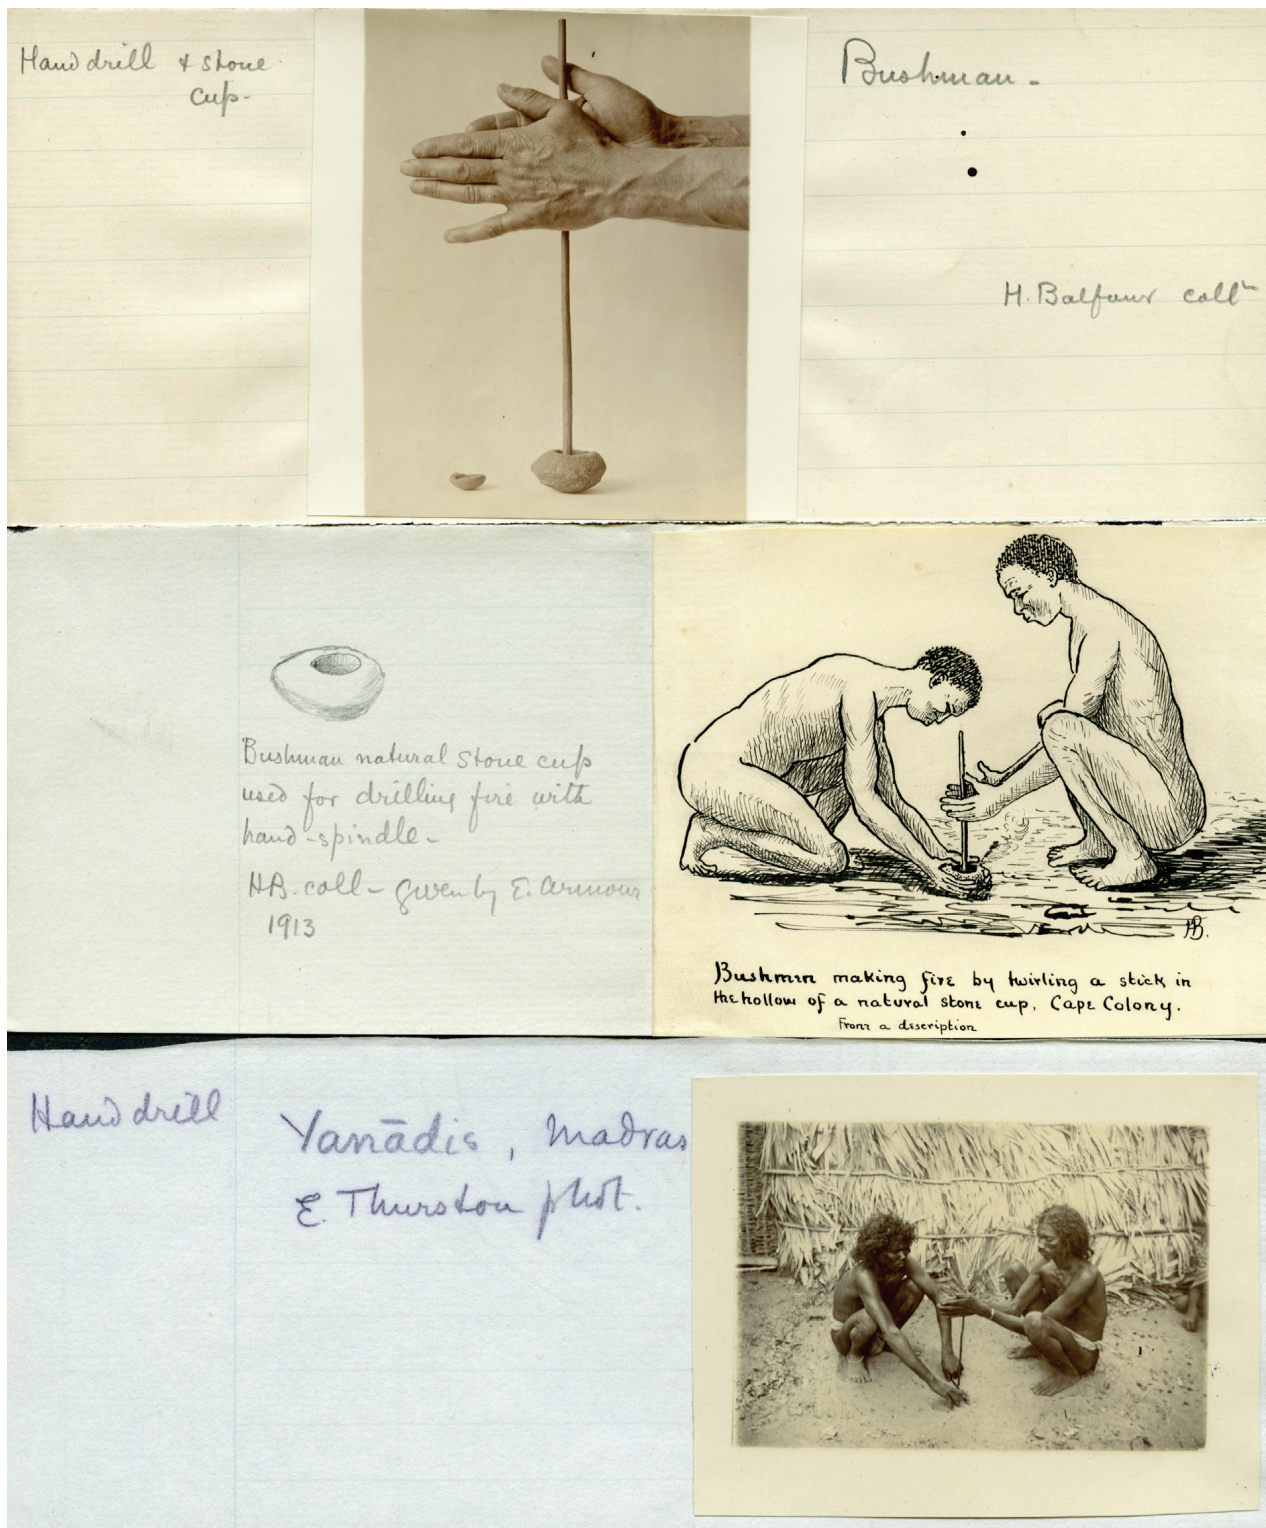 Hand drill & stone
cup-
Bushman-
H. Balfour collⁿ
Bushman natural stone cup
used for drilling fire with
hand-spindle-
HB. coll- given by E. Armour
1913
HB.
Bushmen making fire by twirling a stick in
the hollow of a natural stone cup, Cape Colony.
From a description
Hand drill
Yanādis, Madras
E. Thurston phot.